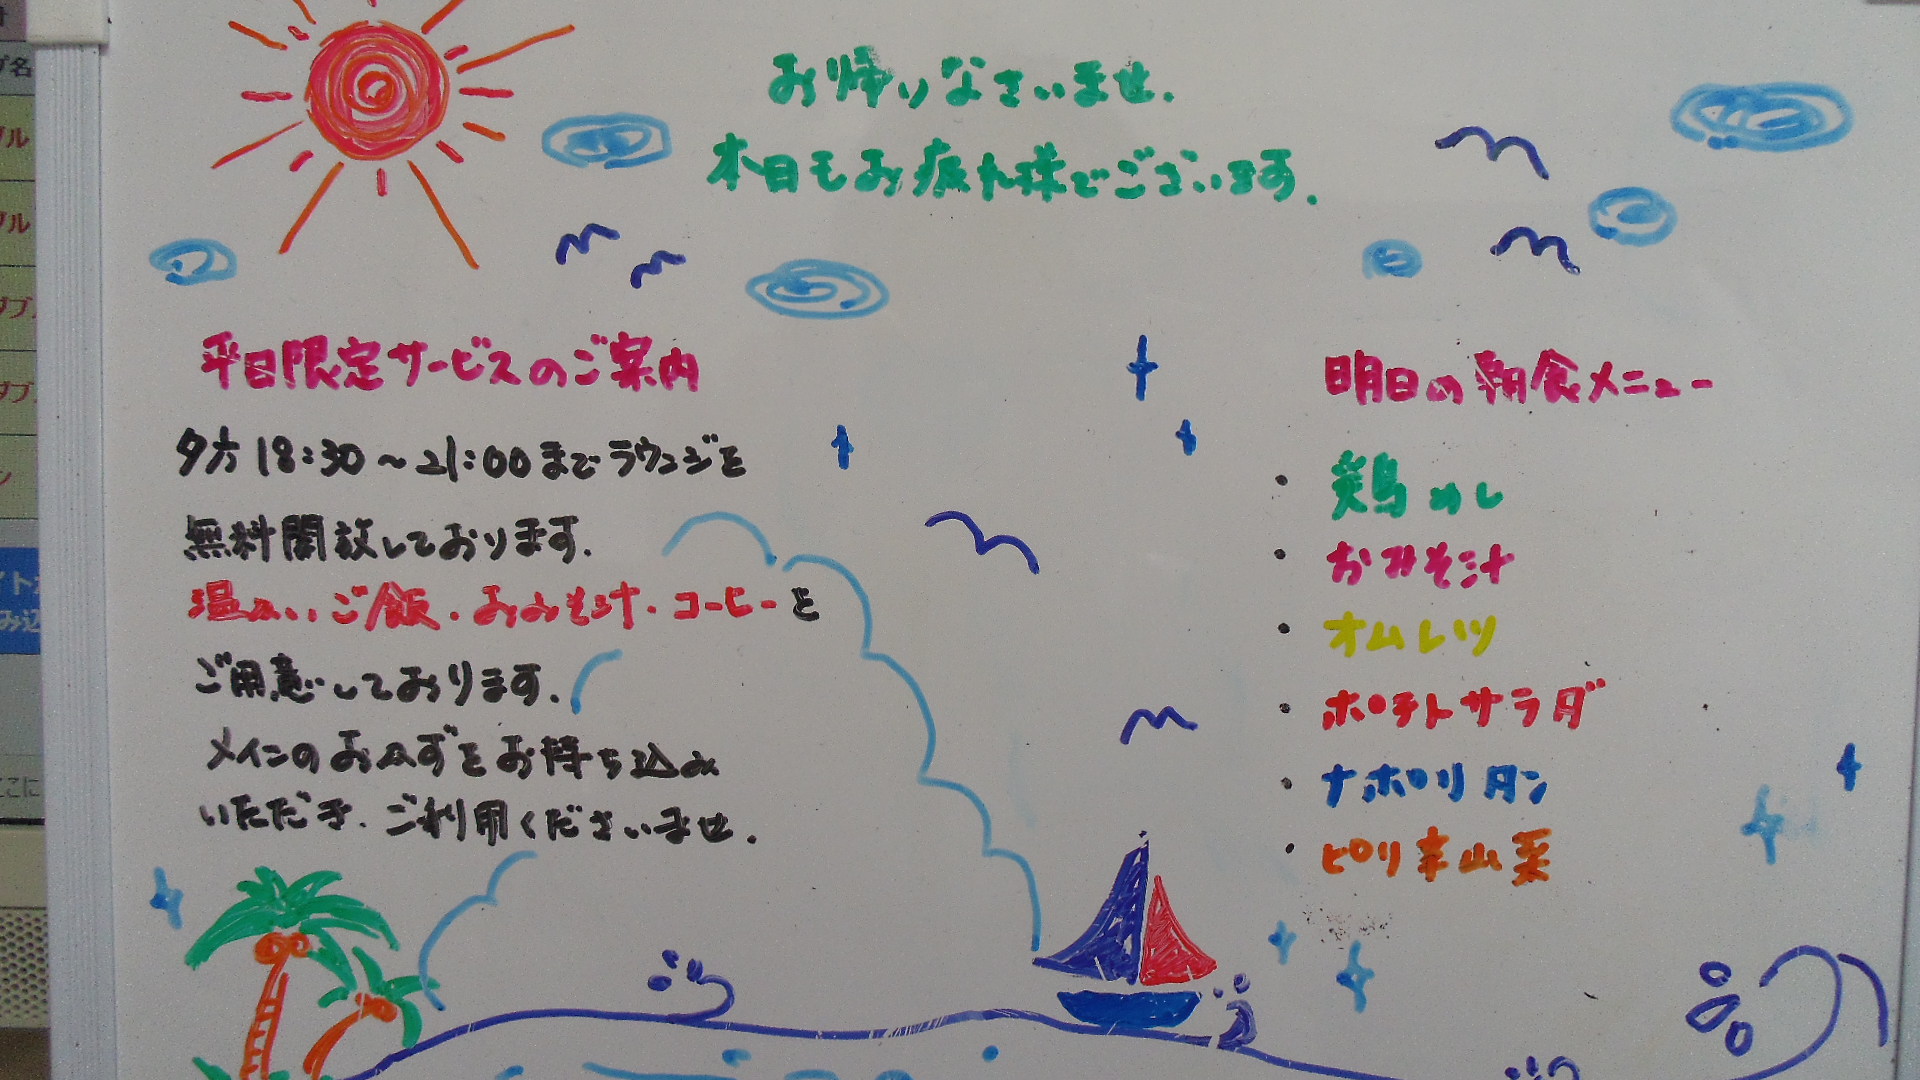 お帰りなさいませ.
本日もお疲れ様でございます.
平日限定サービスのご案内
夕方18:30～21:00までラウンジを
無料開放しております.
温かいご飯・おみそ汁・コーヒーを
ご用意しております.
メインのおかずをお持ち込み
いただき、ご利用くださいませ.
明日の朝食メニュー
・鶏めし
・おみそ汁
・オムレツ
・ポテトサラダ
・ナポリタン
・ピリ辛山菜